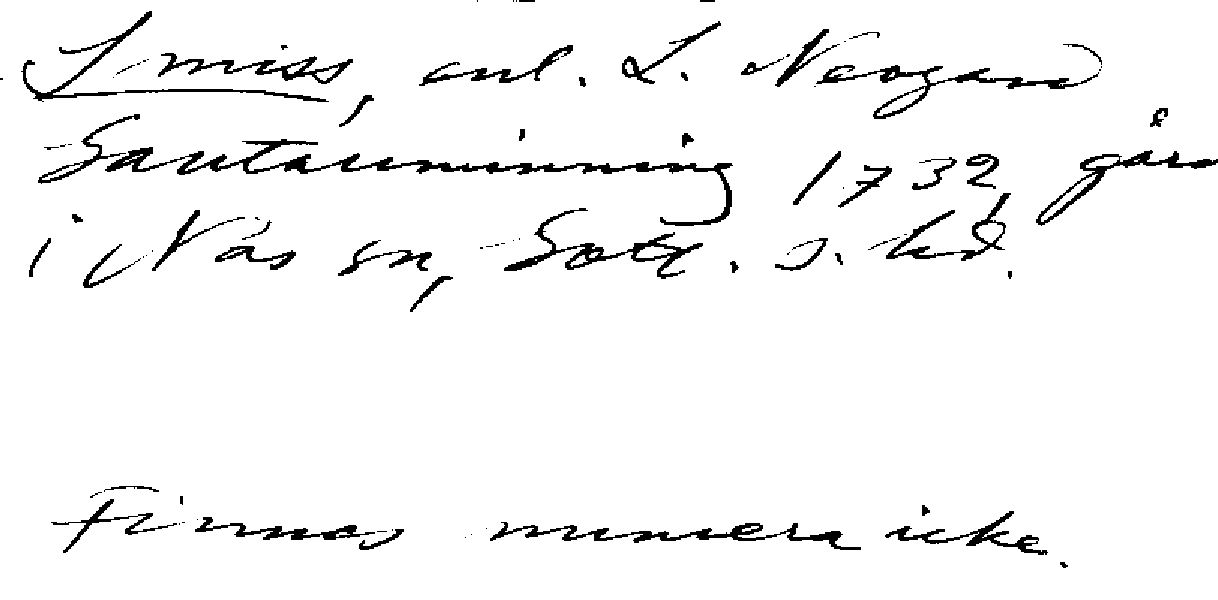 Smiss, enl. L. Neogard
Gautauminning 1732, gård
i Näs sn, Gotl. s. hd.
Finnes numera icke.